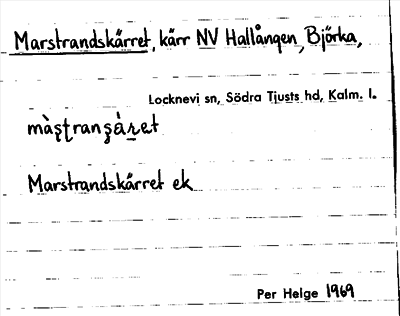 Marstrandskärret, kärr NV Hallången, Björka,
Locknevi sn, Södra Tjusts hd, Kalm. l.
màʂʈranʂæ̀ret
Marstrandskärret ek
Per Helge 1969